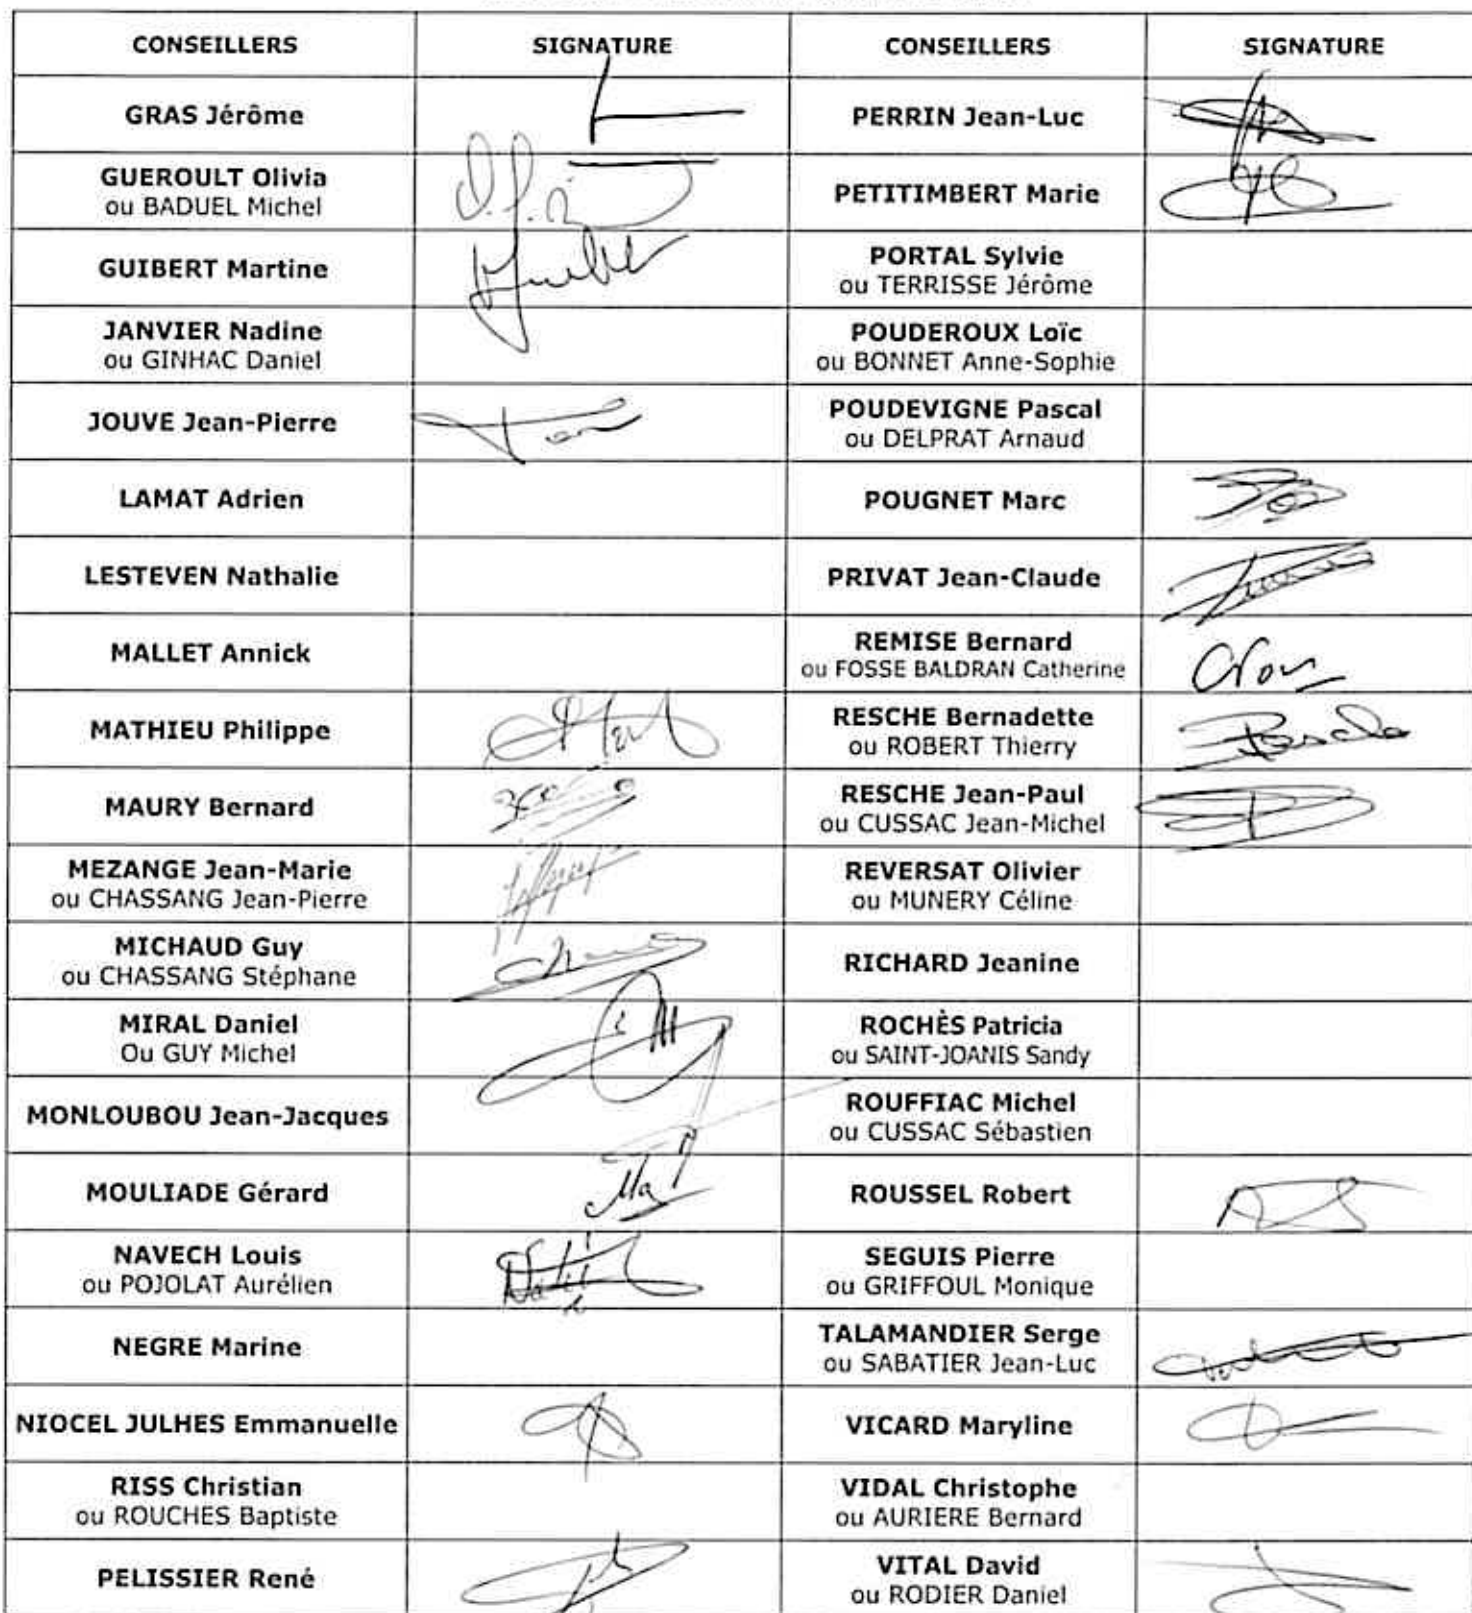 CONSEILLERS SIGNATURE CONSEILLERS SIGNATURE
GRAS Jérôme PERRIN Jean-Luc
GUEROULT Olivia
ou BADUEL Michel
PETITIMBERT Marie
GUIBERT Martine
PORTAL Sylvie
ou TERRISSE Jérôme
JANVIER Nadine
ou GINHAC Daniel
POUDEROUX Loïc
ou BONNET Anne-Sophie
JOUVE Jean-Pierre
POUDEVIGNE Pascal
ou DELPRAT Arnaud
LAMAT Adrien POUGNET Marc
LESTEVEN Nathalie PRIVAT Jean-Claude
MALLET Annick
REMISE Bernard
ou FOSSE BALDRAN Catherine
MATHIEU Philippe
RESCHE Bernadette
ou ROBERT Thierry
MAURY Bernard
RESCHE Jean-Paul
ou CUSSAC Jean-Michel
MEZANGE Jean-Marie
ou CHASSANG Jean-Pierre
REVERSAT Olivier
ou MUNERY Céline
MICHAUD Guy
ou CHASSANG Stéphane
RICHARD Jeanine
MIRAL Daniel
Ou GUY Michel
ROCHÈS Patricia
ou SAINT-JOANIS Sandy
MONLOUBOU Jean-Jacques
ROUFFIAC Michel
ou CUSSAC Sébastien
MOULIADE Gérard ROUSSEL Robert
NAVECH Louis
ou POJOLAT Aurélien
SEGUIS Pierre
ou GRIFFOUL Monique
NEGRE Marine
TALAMANDIER Serge
ou SABATIER Jean-Luc
NIOCEL JULHES Emmanuelle VICARD Maryline
RISS Christian
ou ROUCHES Baptiste
VIDAL Christophe
ou AURIERE Bernard
PELISSIER René
VITAL David
ou RODIER Daniel